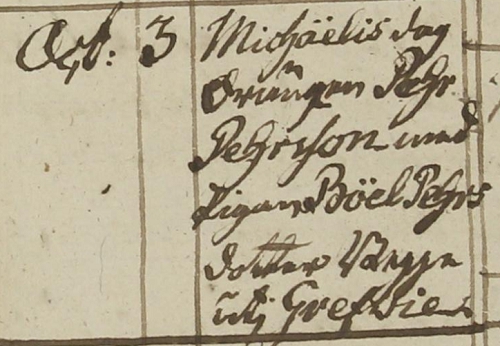 Oct: 3 Michäelis dag
Drängen Pehr
Pehrsson med
Pigan Böel Pehrs
dotter bägge
uti Grefvie